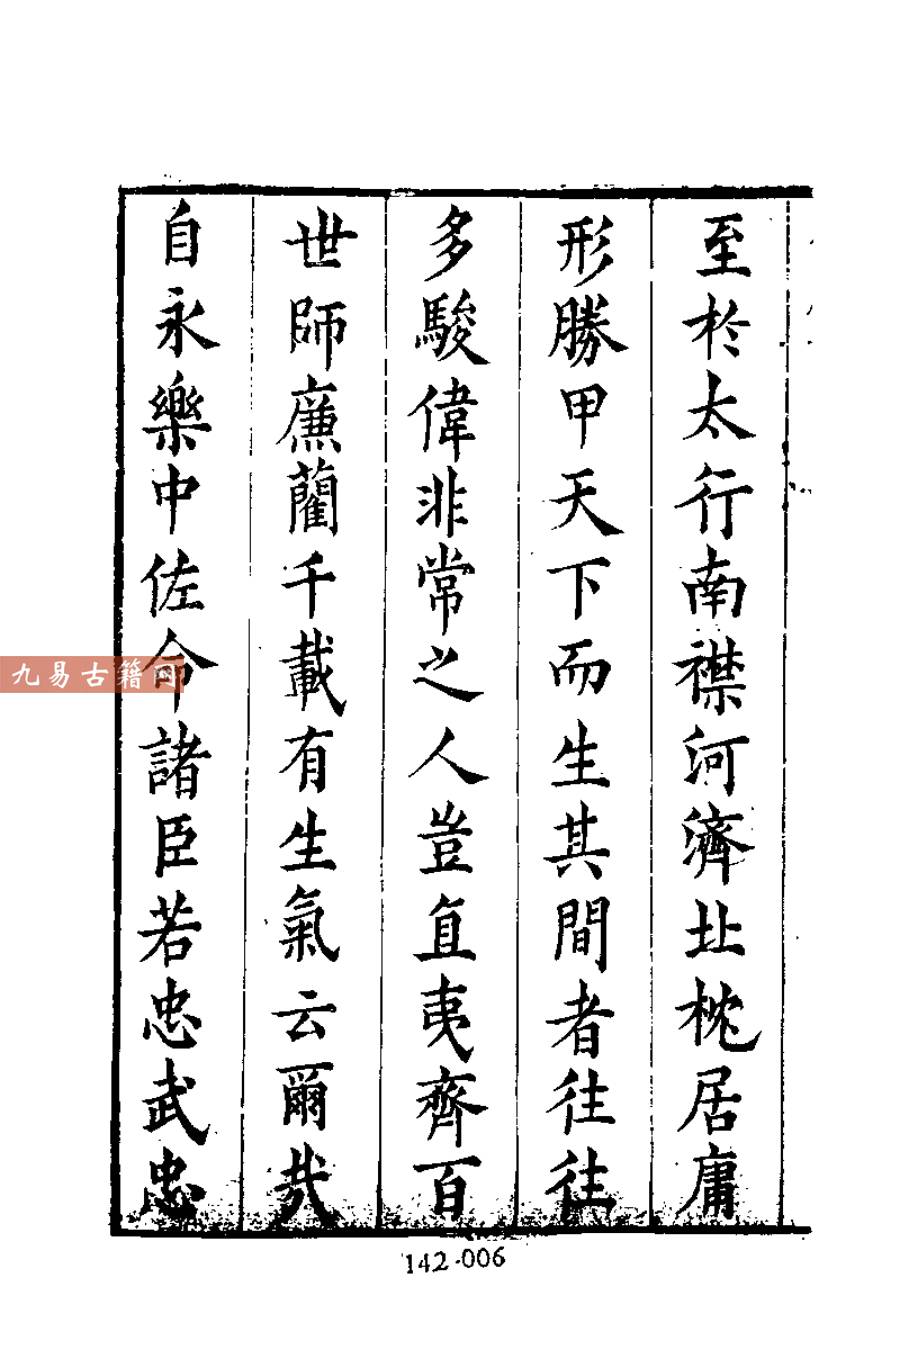 至於太行南襟河濟北枕居庸
形勝甲天下而生其間者往往
多駿偉非常之人豈直夷齊百
世師廉藺千載有生氣云爾哉
自永樂中佐命諸臣若忠武忠
九易古籍网
142-006